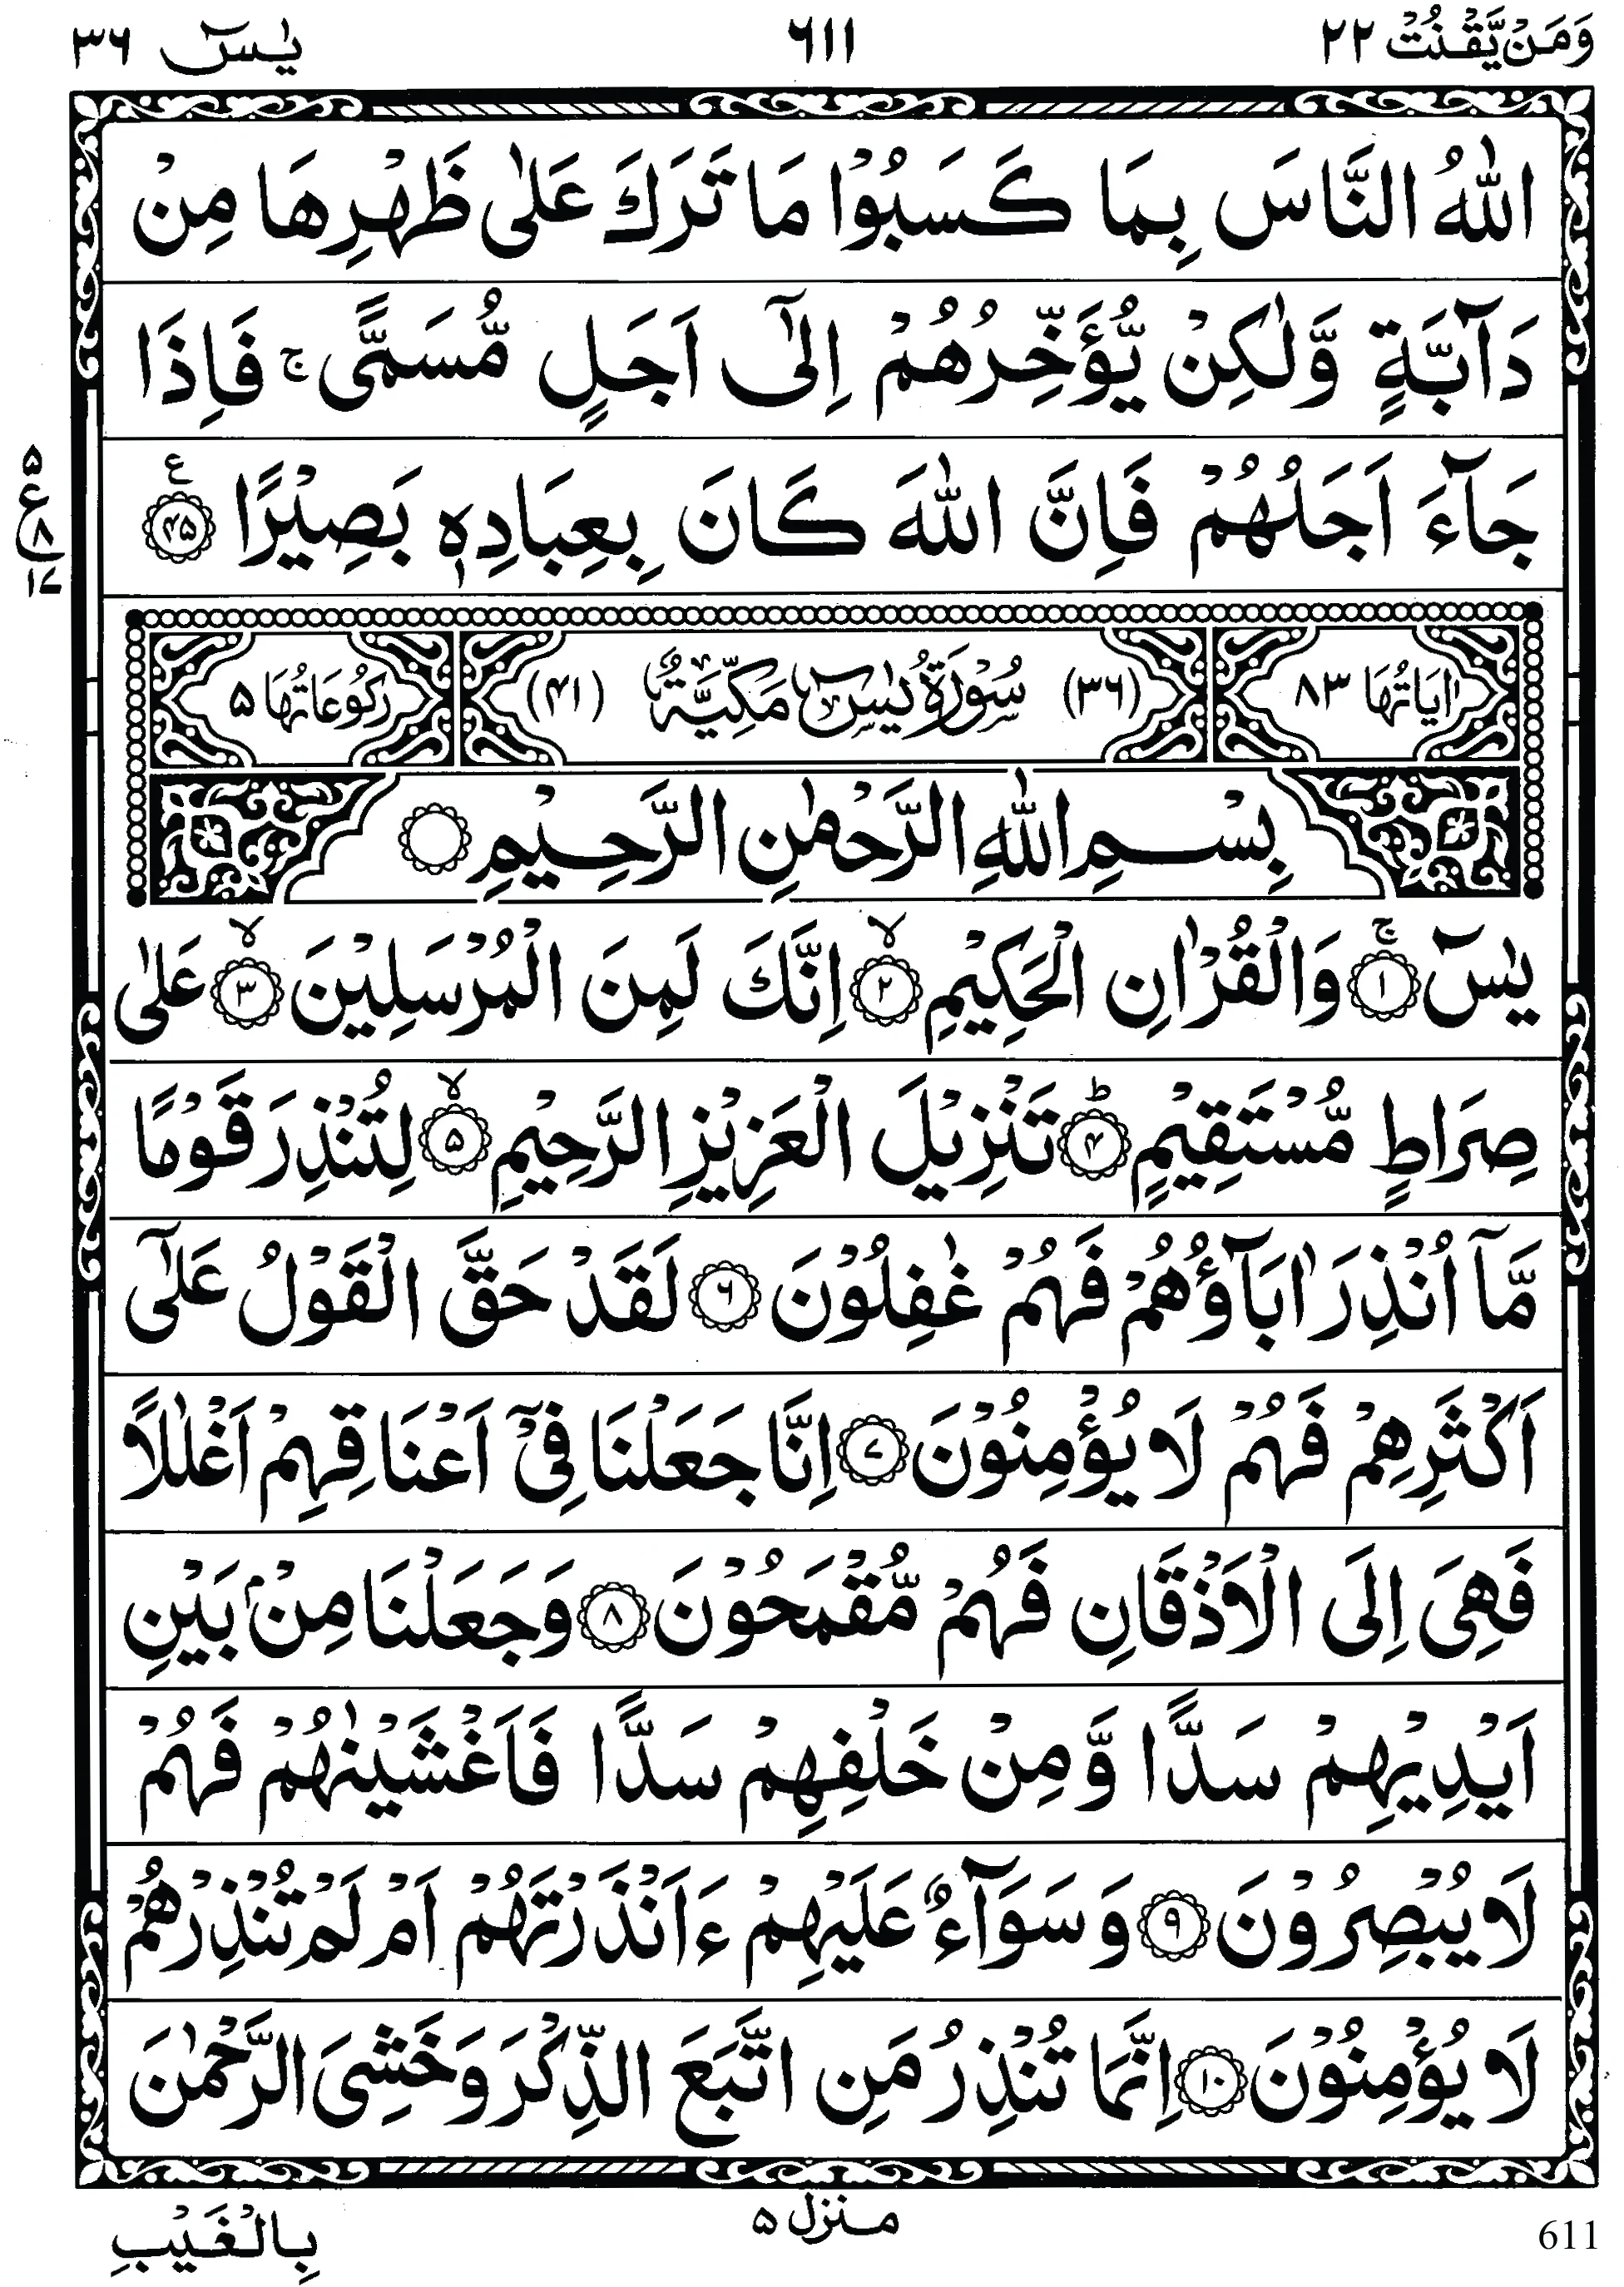 وَمَنْ يَّقْنُتْ ٢٢
٦١١
يٰسٓ ٣٦
اللّٰهُ النَّاسَ بِمَا كَسَبُوْا مَا تَرَكَ عَلٰى ظَهْرِهَا مِنْ
دَآبَّةٍ وَّلٰكِنْ يُّؤَخِّرُهُمْ اِلٰٓى اَجَلٍ مُّسَمًّى ۚ فَاِذَا
جَآءَ اَجَلُهُمْ فَاِنَّ اللّٰهَ كَانَ بِعِبَادِهٖ بَصِيْرًا ۴۵ ع
۵
ع ۸
۱۷
اٰيَاتُهَا ٨٣
(٣٦) سُوْرَةُ يٰسٓ مَكِّيَّةٌ (۴۱)
رُكُوْعَاتُهَا ۵
بِسْمِ اللّٰهِ الرَّحْمٰنِ الرَّحِيْمِ
يٰسٓ ۚ ۱ وَالْقُرْاٰنِ الْحَكِيْمِ ۙ ۲ اِنَّكَ لَمِنَ الْمُرْسَلِيْنَ ۙ ۳ عَلٰى
صِرَاطٍ مُّسْتَقِيْمٍ ؕ ۴ تَنْزِيْلَ الْعَزِيْزِ الرَّحِيْمِ ۙ ۵ لِتُنْذِرَ قَوْمًا
مَّآ اُنْذِرَ اٰبَآؤُهُمْ فَهُمْ غٰفِلُوْنَ ۶ لَقَدْ حَقَّ الْقَوْلُ عَلٰٓى
اَكْثَرِهِمْ فَهُمْ لَا يُؤْمِنُوْنَ ۷ اِنَّا جَعَلْنَا فِيْٓ اَعْنَاقِهِمْ اَغْلٰلًا
فَهِيَ اِلَى الْاَذْقَانِ فَهُمْ مُّقْمَحُوْنَ ۸ وَجَعَلْنَا مِنْۢ بَيْنِ
اَيْدِيْهِمْ سَدًّا وَّمِنْ خَلْفِهِمْ سَدًّا فَاَغْشَيْنٰهُمْ فَهُمْ
لَا يُبْصِرُوْنَ ۹ وَسَوَآءٌ عَلَيْهِمْ ءَاَنْذَرْتَهُمْ اَمْ لَمْ تُنْذِرْهُمْ
لَا يُؤْمِنُوْنَ ۱۰ اِنَّمَا تُنْذِرُ مَنِ اتَّبَعَ الذِّكْرَ وَخَشِيَ الرَّحْمٰنَ
منزل ۵
بِالْغَيْبِ
611